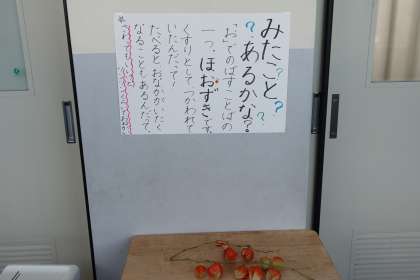 みたこと?
?あるかな??
「お」でのばすことばの
一つ、ほおずきです。
くすりとして つかわれて
いたんだって!
たべると おなかがいたく
なることもあるんだって。